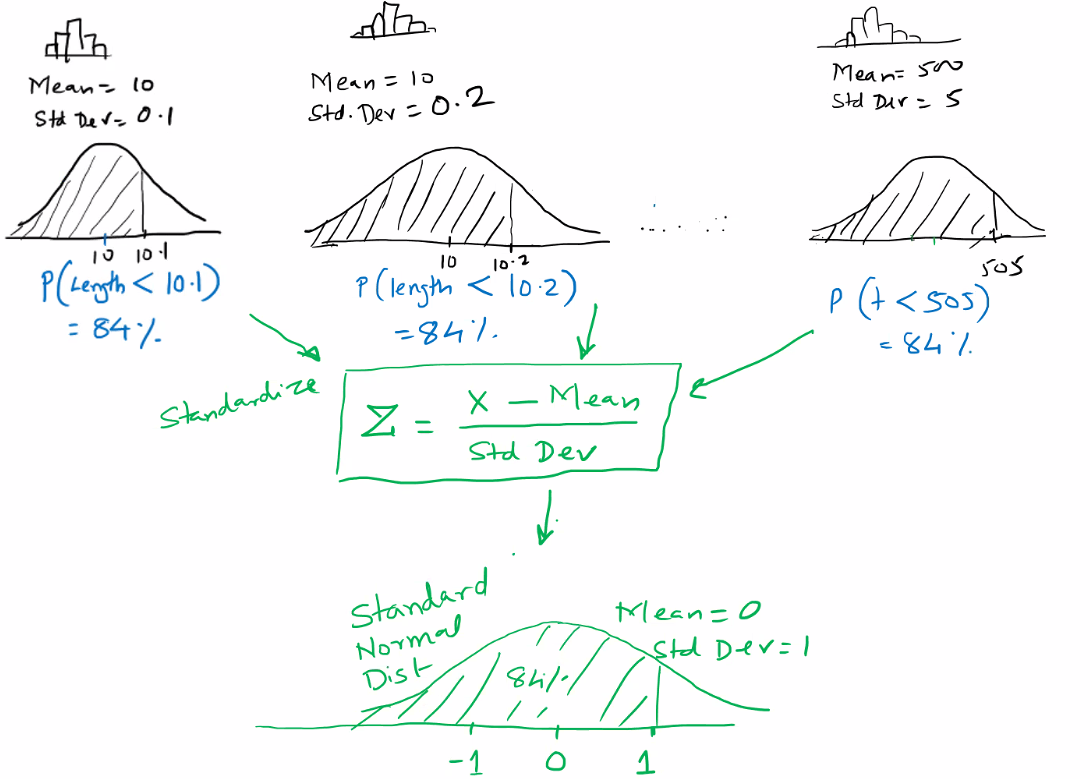 Mean = 10
Std Dev = 0.1
10 10.1
P(Length < 10.1)
= 84%
Mean = 10
Std. Dev = 0.2
10 10.2
P(length < 10.2)
= 84%
Mean = 500
Std Dev = 5
505
P (t < 505)
= 84%
Standardize
Z = X - Mean
Std Dev
Standard
Normal
Dist
Mean = 0
Std Dev = 1
84%
-1 0 1